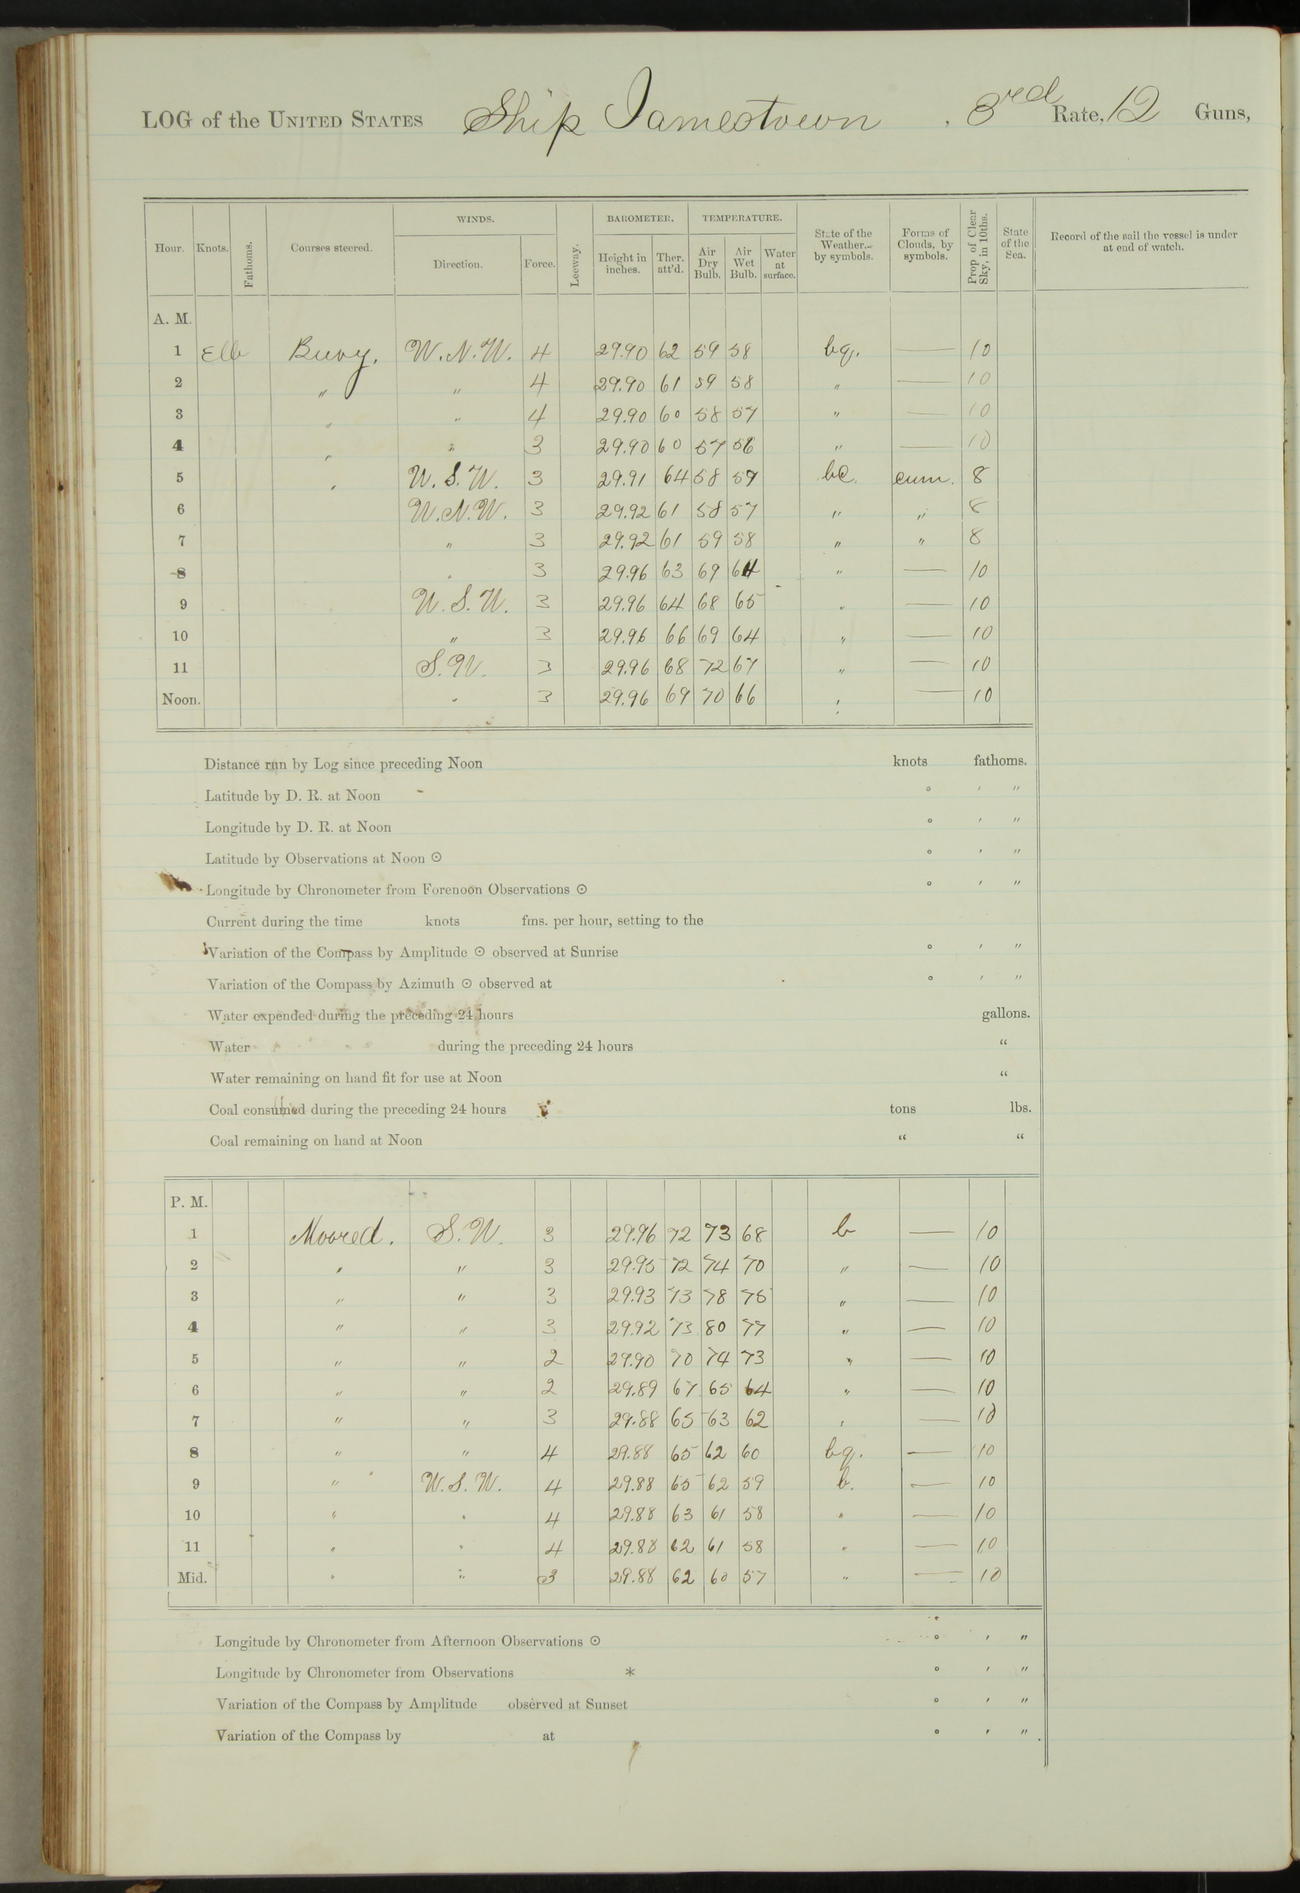 LOG of the UNITED STATES Ship Jamestown, 3rd Rate, 12 Guns,
Hour. Knots. Fathoms. Courses steered. WINDS. Direction. Force. Leeway. BAROMETER. Height in inches. Ther. att'd. TEMPERATURE. Air Dry Bulb. Air Wet Bulb. Water at surface. State of the Weather by symbols. Forms of Clouds, by symbols. Prop of Clear Sky, in 10ths. State of the Sea. Record of the sail the vessel is under at end of watch.
A. M.
1 Buoy. W.N.W. 4 29.90 62 59 58 bq. — 10
2 " " 4 29.90 61 59 58 " — 10
3 " " 4 29.90 60 58 57 " — 10
4 " " 3 29.90 60 57 56 " — 10
5 " W.S.W. 3 29.91 64 58 57 bc. cum. 8
6 W.N.W. 3 29.92 61 58 57 " " 8
7 " 3 29.92 61 59 58 " " 8
8 " 3 29.96 63 69 64 " — 10
9 W.S.W. 3 29.96 64 68 65 " — 10
10 " 3 29.96 66 69 64 " — 10
11 S.W. 3 29.96 68 72 67 " — 10
Noon. " 3 29.96 69 70 66 " — 10
Distance run by Log since preceding Noon knots fathoms.
Latitude by D. R. at Noon ° ′ ″
Longitude by D. R. at Noon ° ′ ″
Latitude by Observations at Noon ☉ ° ′ ″
Longitude by Chronometer from Forenoon Observations ☉ ° ′ ″
Current during the time knots fms. per hour, setting to the
Variation of the Compass by Amplitude ☉ observed at Sunrise ° ′ ″
Variation of the Compass by Azimuth ☉ observed at ° ′ ″
Water expended during the preceding 24 hours gallons.
Water during the preceding 24 hours “
Water remaining on hand fit for use at Noon “
Coal consumed during the preceding 24 hours tons lbs.
Coal remaining on hand at Noon “ “
P. M.
1 Moored. S.W. 3 29.96 72 73 68 b — 10
2 " " 3 29.95 72 74 70 " — 10
3 " " 3 29.93 73 78 76 " — 10
4 " " 3 29.92 73 80 77 " — 10
5 " " 2 29.90 70 74 73 " — 10
6 " " 2 29.89 67 65 64 " — 10
7 " " 3 29.88 65 63 62 " — 10
8 " " 4 29.88 65 62 60 bq. — 10
9 " W.S.W. 4 29.88 65 62 59 b. — 10
10 " " 4 29.88 63 61 58 " — 10
11 " " 4 29.88 62 61 58 " — 10
Mid. " " 3 29.88 62 60 57 " — 10
Longitude by Chronometer from Afternoon Observations ☉ ° ′ ″
Longitude by Chronometer from Observations * ° ′ ″
Variation of the Compass by Amplitude observed at Sunset ° ′ ″
Variation of the Compass by at ° ′ ″